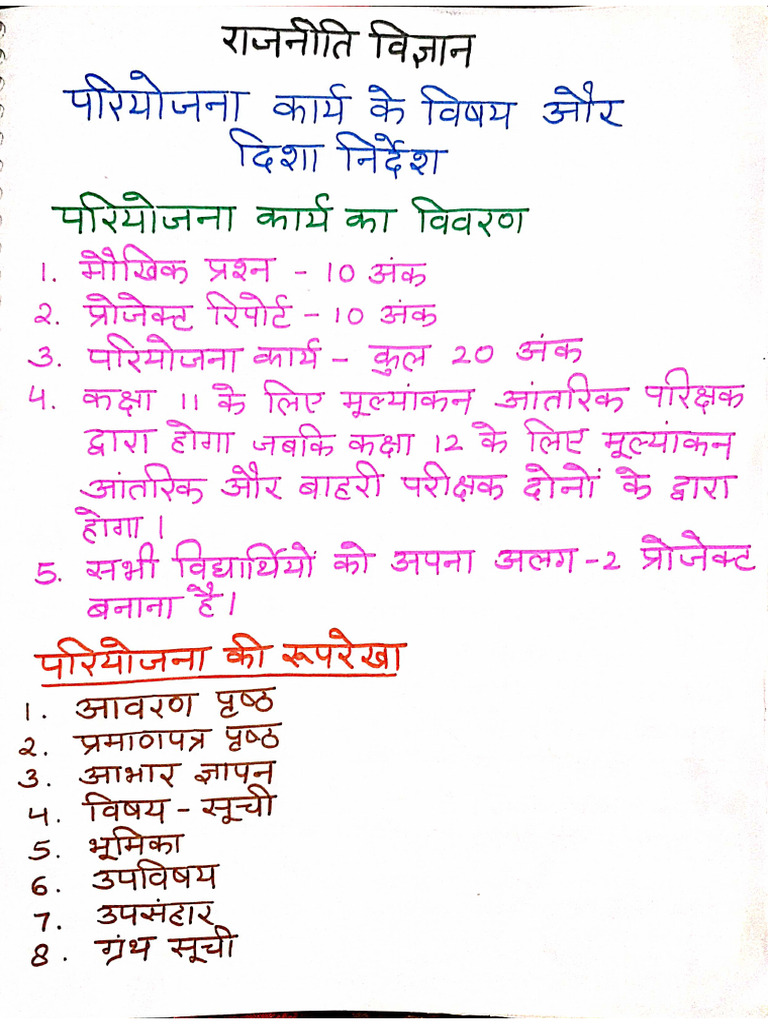 राजनीति विज्ञान
परियोजना कार्य के विषय और
दिशा निर्देश
परियोजना कार्य का विवरण
1. मौखिक प्रश्न - 10 अंक
2. प्रोजेक्ट रिपोर्ट - 10 अंक
3. परियोजना कार्य - कुल 20 अंक
4. कक्षा 11 के लिए मूल्यांकन आंतरिक परिक्षक
द्वारा होगा जबकि कक्षा 12 के लिए मूल्यांकन
आंतरिक और बाहरी परीक्षक दोनों के द्वारा
होगा।
5. सभी विद्यार्थियों को अपना अलग-2 प्रोजेक्ट
बनाना है।
परियोजना की रूपरेखा
1. आवरण पृष्ठ
2. प्रमाणपत्र पृष्ठ
3. आभार ज्ञापन
4. विषय - सूची
5. भूमिका
6. उपविषय
7. उपसंहार
8. ग्रंथ सूची